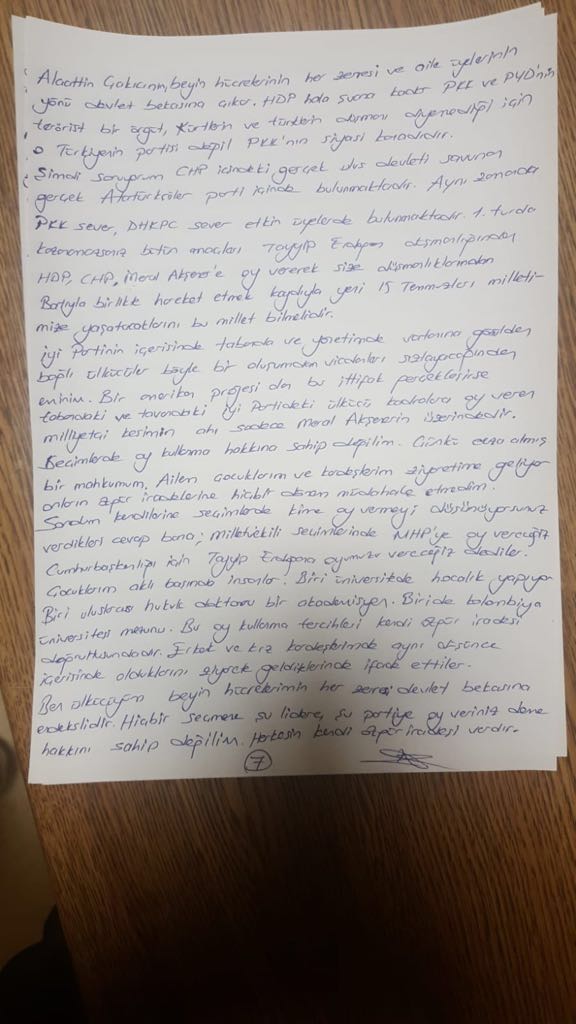 Alaattin Çakıcının, beyin hücrelerinin her zerresi ve aile üyelerinin
yönü devlet bekasına çıkar. HDP hala şuana kadar PKK ve PYD'nin
terörist bir örgüt, Kürtlerin ve türklerin düşmanı diyemediği için
o Türkiyenin partisi değil PKK'nın siyasi kanadıdır.
Şimdi soruyorum CHP içindeki gerçek ulus devleti savunan
gerçek Atatürkçüler parti içinde bulunmaktadır. Aynı zamanda
PKK sever, DHKPC sever etkin üyelerde bulunmaktadır. 1. turda
kazanamazsanız bütün amaçları Tayyip Erdoğan düşmanlığından
HDP, CHP, Meral Akşener'e oy vererek size düşmanlıklarından
Batıyla birlikte hareket etmek kaydıyla yeni 15 Temmuzları milleti-
mize yaşatacaklarını bu millet bilmelidir.
İyi Partinin içerisinde tabanda ve yönetimde vatanına gönülden
bağlı ülkücüler böyle bir oluşumdan vicdanları sızlayacağından
eminim. Bir amerikan projesi olan bu ittifak gerçekleşirse
tabandaki ve tavandaki İyi Partideki ülkücü kadrolara oy veren
milliyetçi kesimin ahı sadece Meral Akşenerin üzerindedir.
Seçimlerde oy kullanma hakkına sahip değilim. Çünkü ceza almış
bir mahkumum. Ailem çocuklarım ve kardeşlerim ziyaretime geliyor
onların özgür iradelerine hiçbir zaman müdahale etmedim.
Sordum kendilerine seçimlerde kime oy vermeyi düşünüyorsunuz
verdikleri cevap bana; milletvekili seçimlerinde MHP'ye oy vereceğiz
Cumhurbaşkanlığı için Tayyip Erdoğana oyumuzu vereceğiz dediler.
Çocuklarım aklı başında insanlar. Biri üniversitede hocalık yapıyor
Biri uluslarası hukuk doktoru bir akademisyen. Biride kolonbiya
üniversitesi mezunu. Bu oy kullanma tercihleri kendi özgür iradesi
doğrultusundadır. Erkek ve kız kardeşlerimde aynı düşünce
içerisinde olduklarını ziyarete geldiklerinde ifade ettiler.
Ben ülkücüyüm beyin hücrelerimin her zerresi devlet bekasına
endekslidir. Hiçbir seçmene şu lidere, şu partiye oy veriniz deme
hakkını sahip değilim. Herkesin kendi özgür iradesi vardır.
7